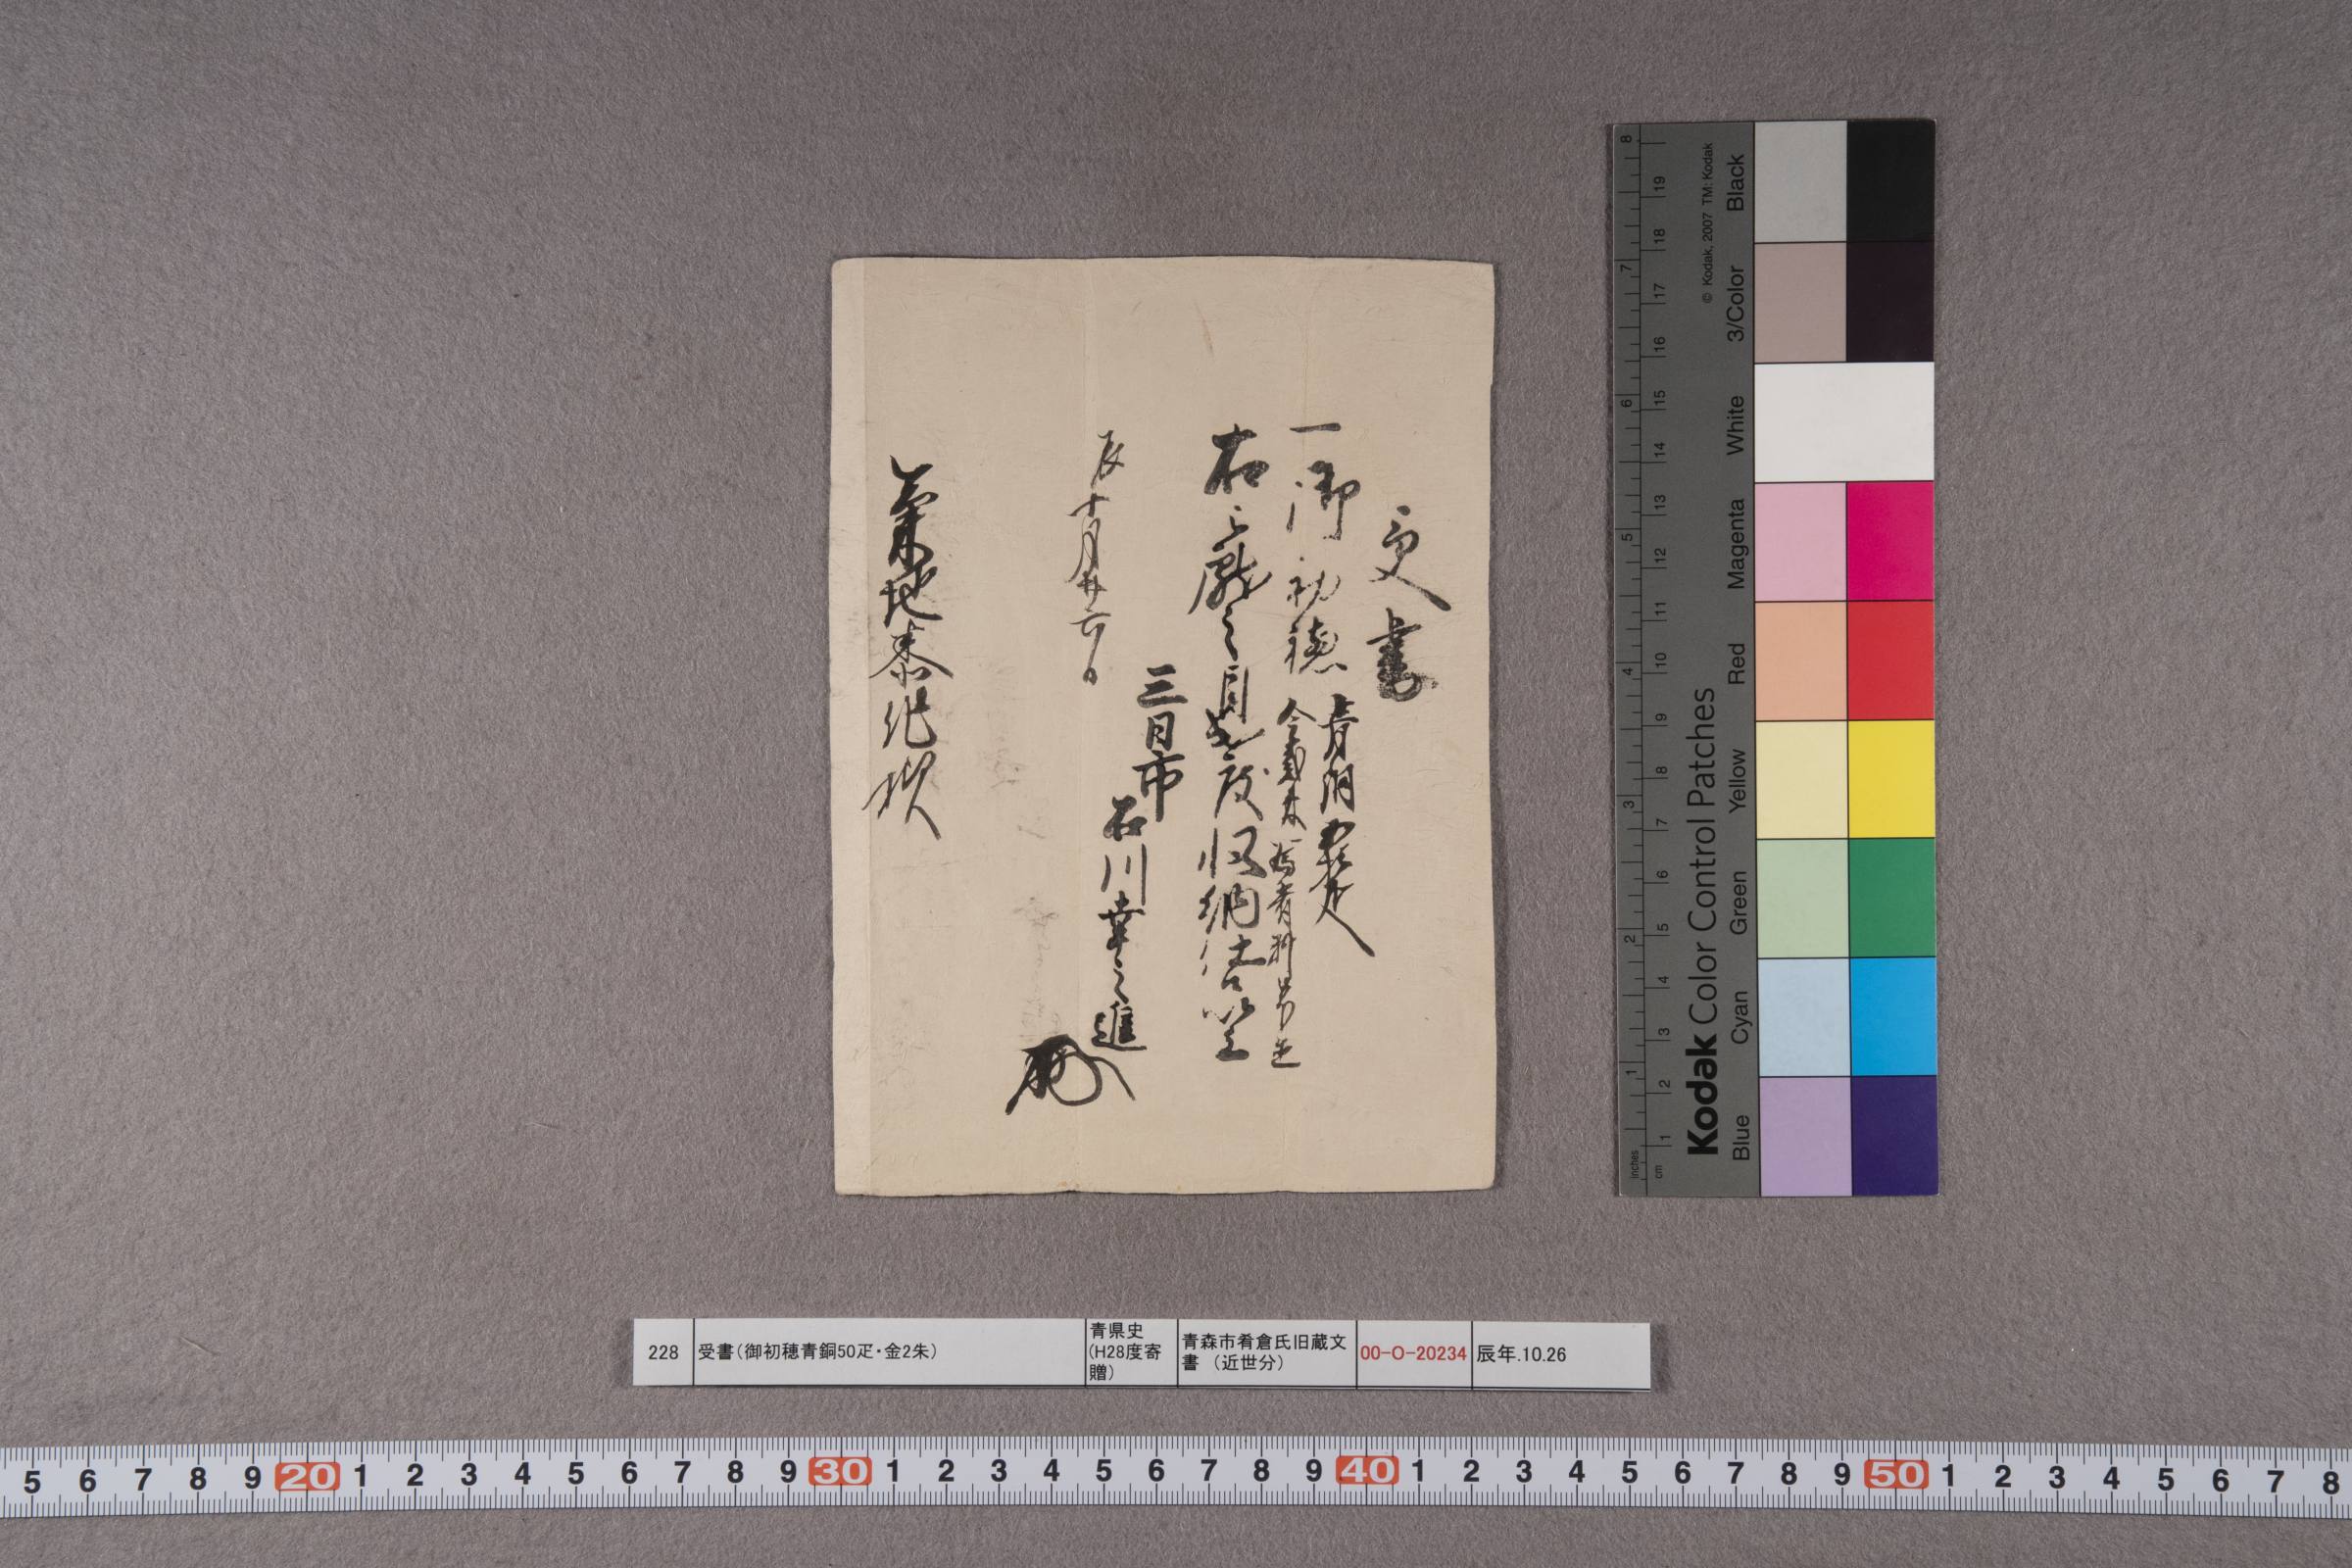 受書
一御初穂 青銅五拾疋
金弐朱
右之厳之目出度収納仕候以上
三日市
石川幸之進
辰十月廿六日
菊地泰化様
228
受書（御初穂青銅50疋・金2朱）
青県史
（H28度寄
贈）
青森市肴倉氏旧蔵文
書 （近世分）
00-O-20234
辰年.10.26
Kodak Color Control Patches
© Kodak, 2007 TM: Kodak
Blue Cyan Green Yellow Red Magenta White 3/Color Black
inches 1 2 3 4 5 6 7 8
cm 1 2 3 4 5 6 7 8 9 10 11 12 13 14 15 16 17 18 19
5 6 7 8 9 20 1 2 3 4 5 6 7 8 9 30 1 2 3 4 5 6 7 8 9 40 1 2 3 4 5 6 7 8 9 50 1 2 3 4 5 6 7 8